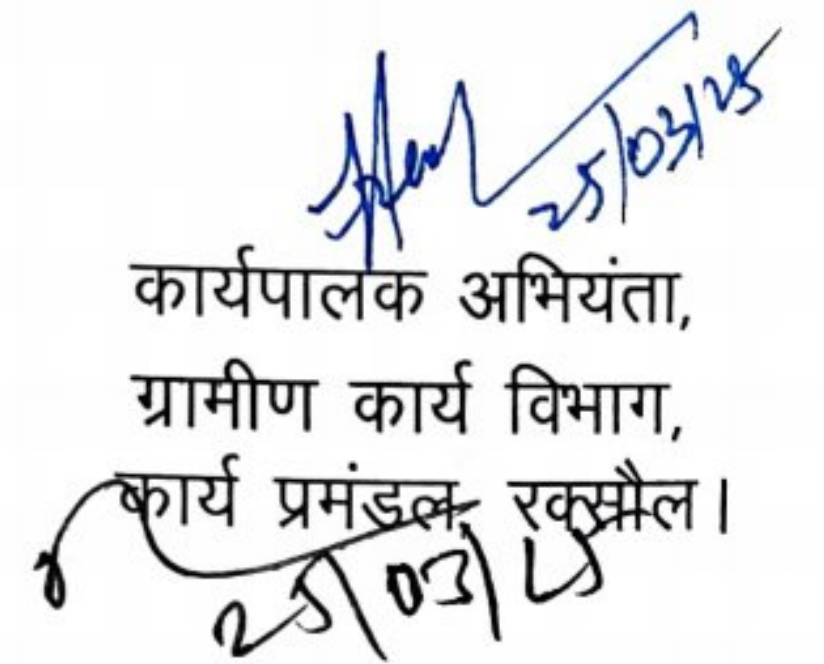 25/03/25
कार्यपालक अभियंता,
ग्रामीण कार्य विभाग,
कार्य प्रमंडल, रक्सौल।
25/03/25